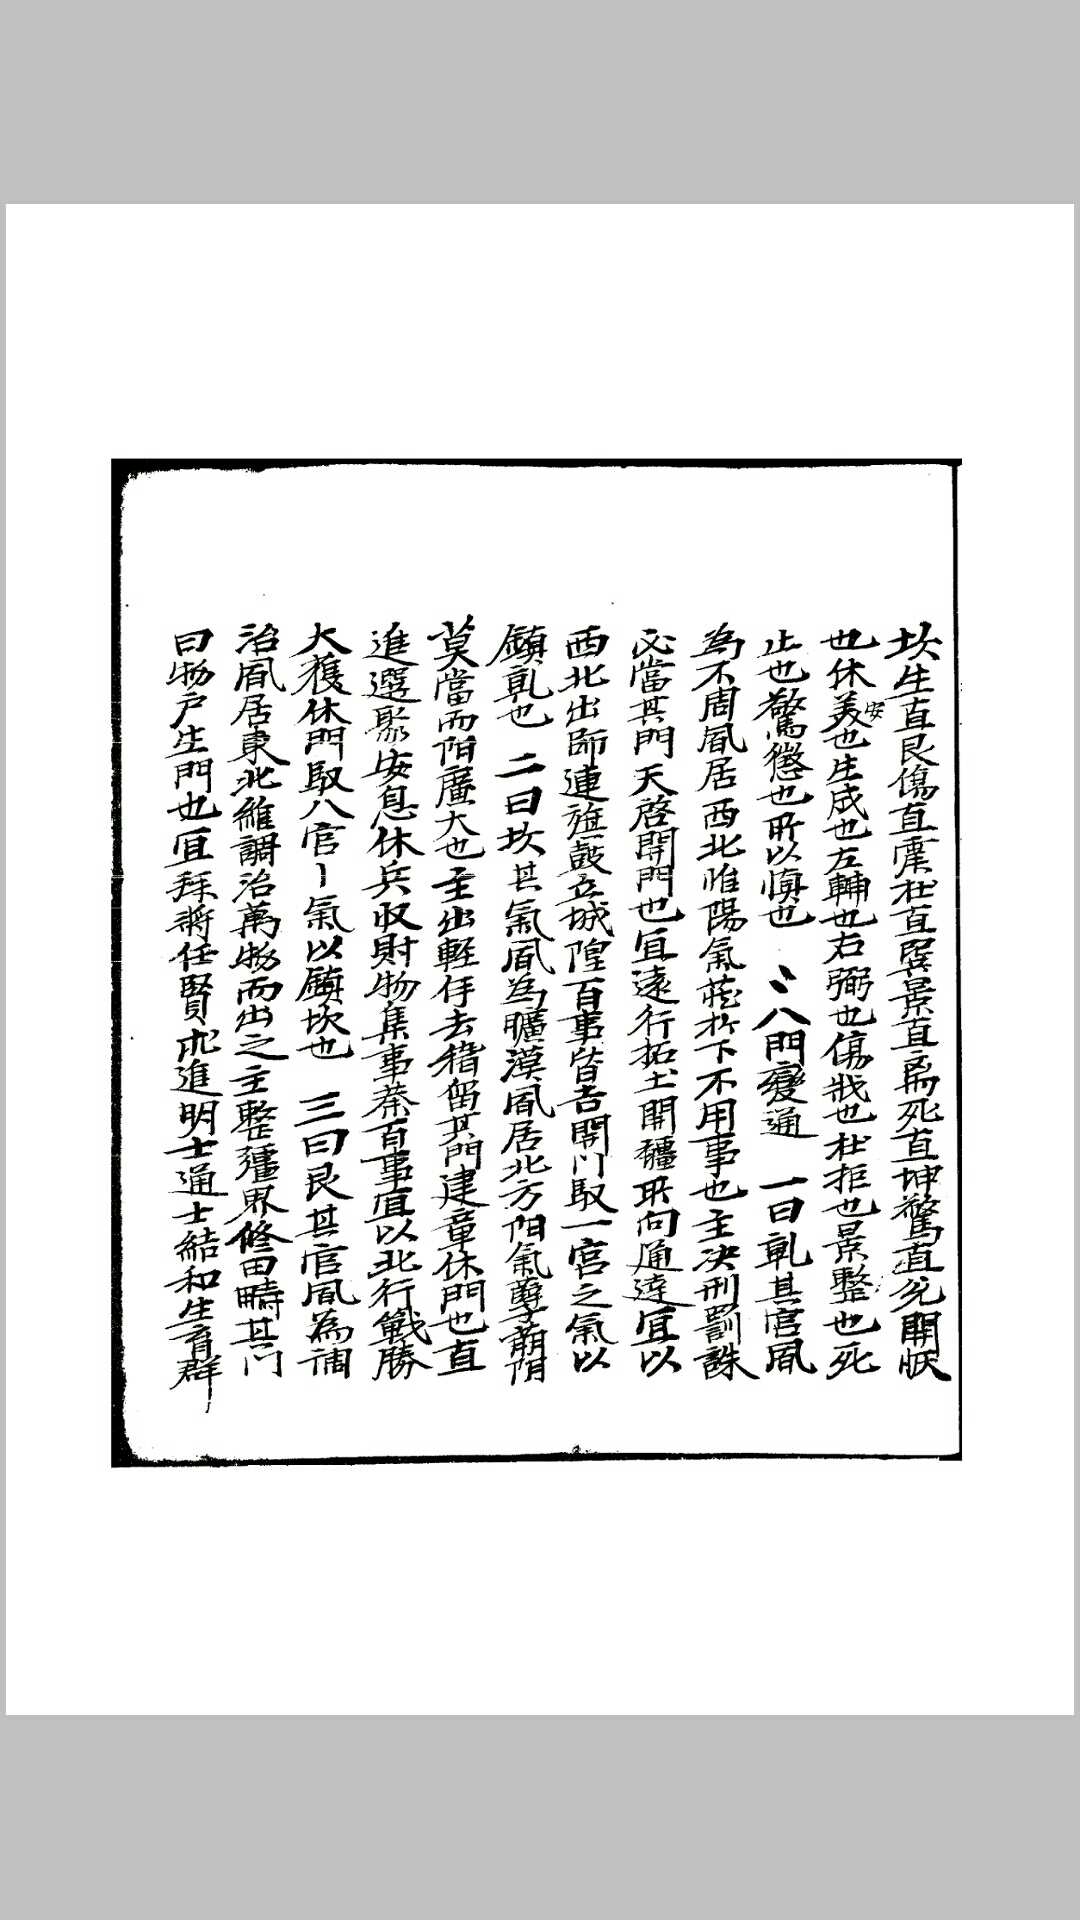 坎生直艮傷直震杜直巽景直离死直坤驚直兊開
也休美安也生成也左輔也右弼也傷戕也杜拒也景整也死
止也驚懲也所以慎也 八門變通 一曰乹其宮風
為不周風居西北惟陽氣蔵於下不用事也主决刑罰誅
必當其門天啓開門也冝遠行拓土開疆取向通達冝以
西北出師連旌鼓立城隍百事皆吉開门馭一宮之氣以
鎮乹也 二曰坎其氣風為曠漠風居北方阳氣孽萠阴
莫當而阳廣大也主出軽俘去稽留其門建章休門也直
進選聚安息休兵収財物集事蔡百事冝以北行戰勝
大獲休門馭八官氣以鎮坎也 三曰艮其官風為調
治風居東北維調治萬物而出之主整疆界修田疇其门
曰物户生門也冝拜將任賢求進明士通士結和生育群